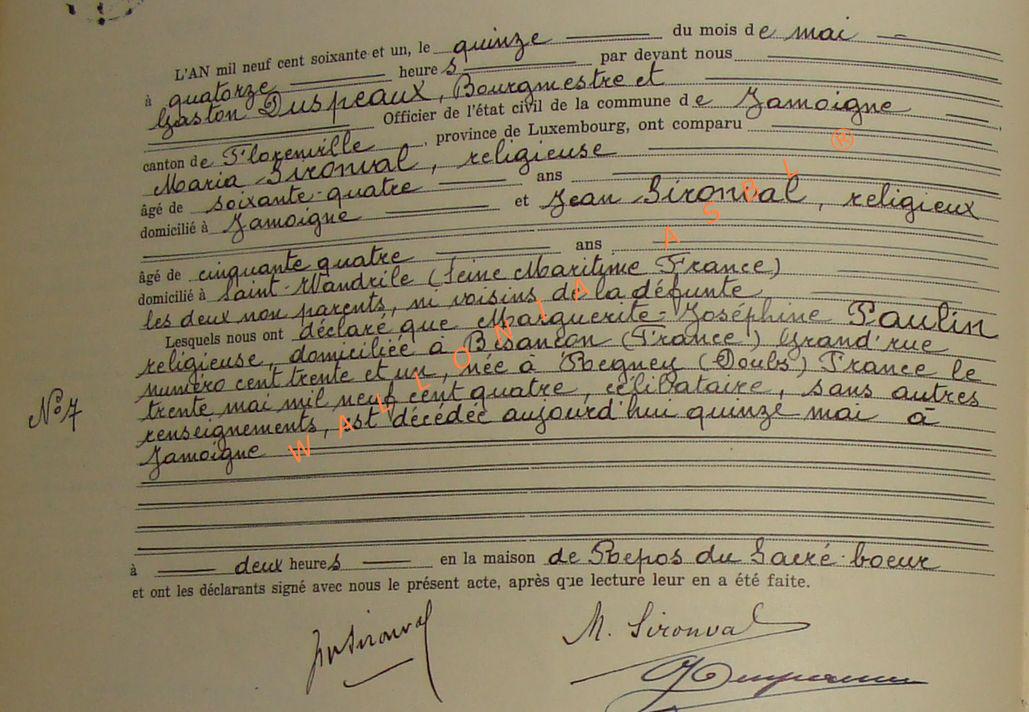 L'AN mil neuf cent soixante et un, le quinze du mois de mai
à quatorze heures par devant nous
Gaston Duspeaux, Bourgmestre et
Officier de l'état civil de la commune de Jamoigne
canton de Florenville, province de Luxembourg, ont comparu
Maria Sironval, religieuse
âgé de soixante-quatre ans
domicilié à Jamoigne et Jean Sironval, religieux
âgé de cinquante quatre ans
domicilié à Saint-Wandrile (Seine Maritime France)
les deux non parents, ni voisins de la défunte
Lesquels nous ont déclaré que Marguerite-Joséphine Paulin
religieuse, domiciliée à Besançon (France) Grand'rue
numéro cent trente et un, née à Regney (Doubs) France le
N°7 trente mai mil neuf cent quatre, célibataire, sans autres
renseignements, est décédée aujourd'hui quinze mai à
Jamoigne
à deux heures en la maison de Repos du Sacré-Coeur
et ont les déclarants signé avec nous le présent acte, après que lecture leur en a été faite.
Sironval M. Sironval
WALLONIA ASBL ®